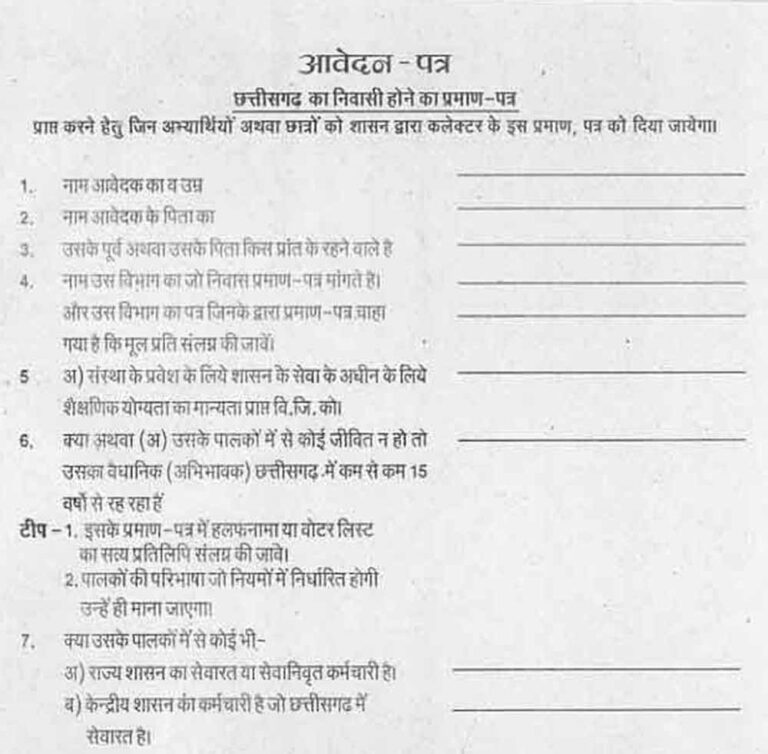 आवेदन - पत्र
छत्तीसगढ का निवासी होने का प्रमाण-पत्र
प्राप्त करने हेतु जिन अभ्यार्थियों अथवा छात्रों को शासन द्वारा कलेक्टर के इस प्रमाण, पत्र को दिया जायेगा।
1. नाम आवेदक का व उम्र
2. नाम आवेदक के पिता का
3. उसके पूर्व अथवा उसके पिता किस प्रांत के रहने वाले है
4. नाम उस विभाग का जो निवास प्रमाण-पत्र मांगते है।
और उस विभाग का पत्र जिनके द्वारा प्रमाण-पत्र चाहा
गया है कि मूल प्रति संलग्न की जावें।
5 अ) संस्था के प्रवेश के लिये शासन के सेवा के अधीन के लिये
शैक्षणिक योग्यता का मान्यता प्राप्त वि.जि. को।
6. क्या अथवा (अ) उसके पालकों में से कोई जीवित न हो तो
उसका वैधानिक (अभिभावक) छत्तीसगढ में कम से कम 15
वर्षो से रह रहा हैं
टीप - 1. इसके प्रमाण-पत्र में हलफनामा या वोटर लिस्ट
का सत्य प्रतिलिपि संलग्न की जावे।
2. पालकों की परिभाषा जो नियमों में निर्धारित होगी
उन्हें ही माना जाएगा।
7. क्या उसके पालकों में से कोई भी-
अ) राज्य शासन का सेवारत या सेवानिवृत कर्मचारी है।
ब) केन्द्रीय शासन का कर्मचारी है जो छत्तीसगढ में
सेवारत है।